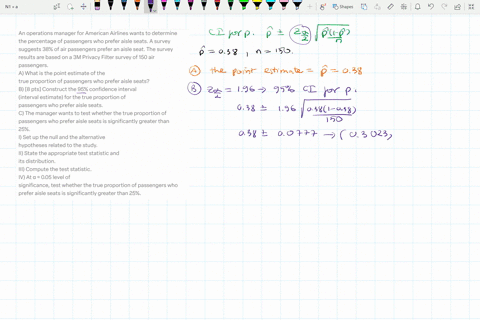 N1 × 6
Shapes
An operations manager for American Airlines wants to determine
the percentage of passengers who prefer aisle seats. A survey
suggests 38% of air passengers prefer an aisle seat. The survey
results are based on a 3M Privacy Filter survey of 150 air
passengers.
A) What is the point estimate of the
true proportion of passengers who prefer aisle seats?
B) [8 pts] Construct the 95% confidence interval
(interval estimate) for the true proportion of
passengers who prefer aisle seats.
C) The manager wants to test whether the true proportion of
passengers who prefer aisle seats is significantly greater than
25%.
I) Set up the null and the alternative
hypotheses related to the study.
II) State the appropriate test statistic and
its distribution.
III) Compute the test statistic.
IV) At α = 0.05 level of
significance, test whether the true proportion of passengers who
prefer aisle seats is significantly greater than 25%.
CI for p. p̂ ± Zα/2 √(p̂(1-p̂)/n)
p̂ = 0.38 , n = 150.
A the point estimate = p̂ = 0.38
B Zα/2 = 1.96 → 95% CI for p.
0.38 ± 1.96 √(0.38(1-0.38)/150)
0.38 ± 0.0777 → (0.3023,